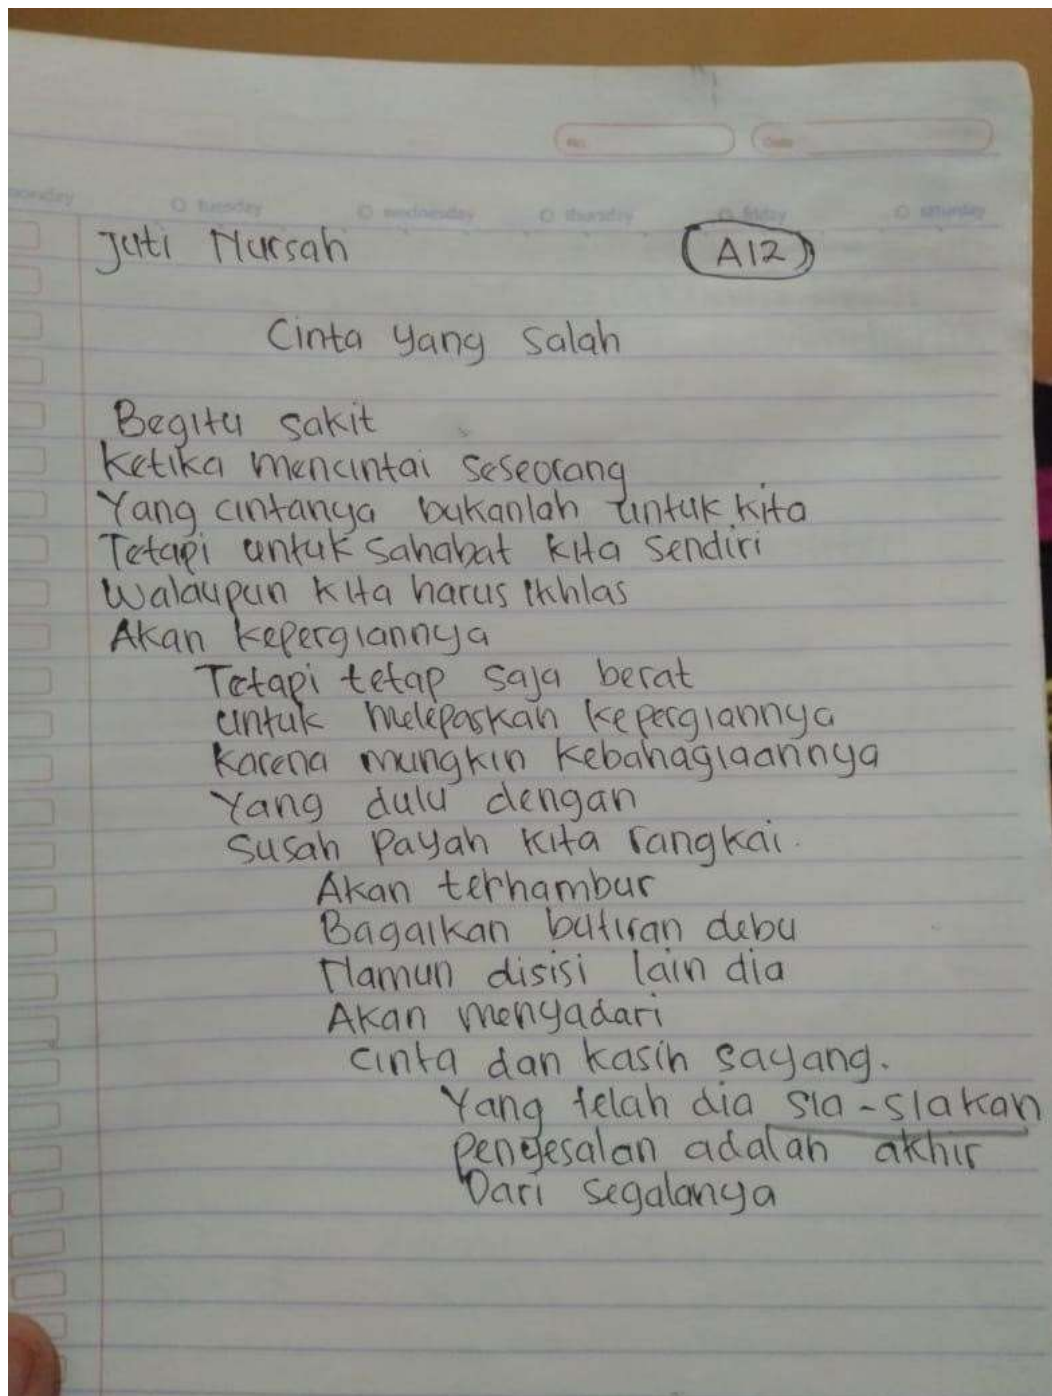 No: Date:
monday tuesday wednesday thursday friday saturday
Juti Nursah A12
Cinta yang salah
Begitu sakit
Ketika mencintai seseorang
Yang cintanya bukanlah untuk kita
Tetapi untuk sahabat kita sendiri
Walaupun kita harus ikhlas
Akan kepergiannya
Tetapi tetap saja berat
untuk melepaskan kepergiannya
karena mungkin kebahagiaannya
Yang dulu dengan
susah payah kita rangkai.
Akan terhambur
Bagaikan butiran debu
Namun disisi lain dia
Akan menyadari
cinta dan kasih sayang.
Yang telah dia sia-siakan
penyesalan adalah akhir
Dari segalanya